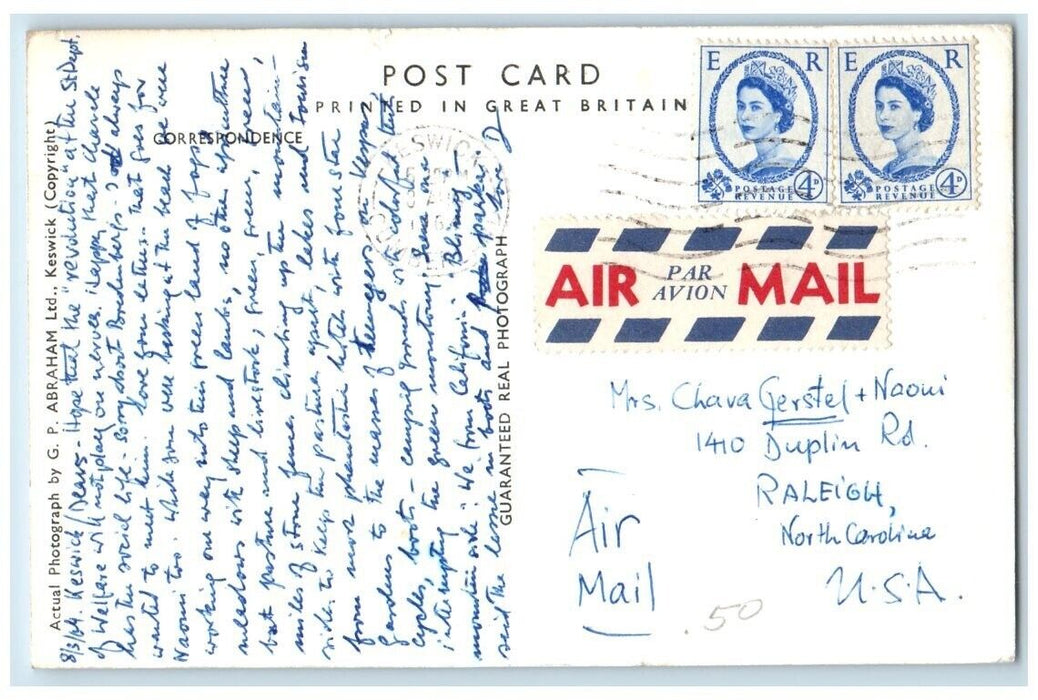 POST CARD
PRINTED IN GREAT BRITAIN
CORRESPONDENCE
Actual Photograph by G. P. ABRAHAM Ltd., Keswick (Copyright)
GUARANTEED REAL PHOTOGRAPH
8/3/64 Keswick/Dears - Hope that the "revolution" at the St Dept.
of Welfare will not play on nerves. Happy, that Chava
has the social life - sorry about - always
wanted to meet him. Love your letters - that goes for
Naomi too. While you were at the beach we were
working our way into this green land of
meadows with sheep and lambs, no other agriculture
but pasture and livestock, green, green, green,
miles of stone fences climbing up the mountain-
sides to keep the pastures apart, lakes and tourism
from most phantastic hotels with four star
Gardens to the masses of teenagers on
cycles, boots - camping grounds with colorful tents
interrupting the green monotony on one
mountain side: We from California - Blimey
said the lassie in boots and
love D
E R
POSTAGE
REVENUE
4D
E R
POSTAGE
REVENUE
4D
KESWICK
AIR PAR AVION MAIL
Mrs. Chava Gerstel + Naomi
1410 Duplin Rd.
RALEIGH,
North Carolina
U.S.A.
Air
Mail
.50